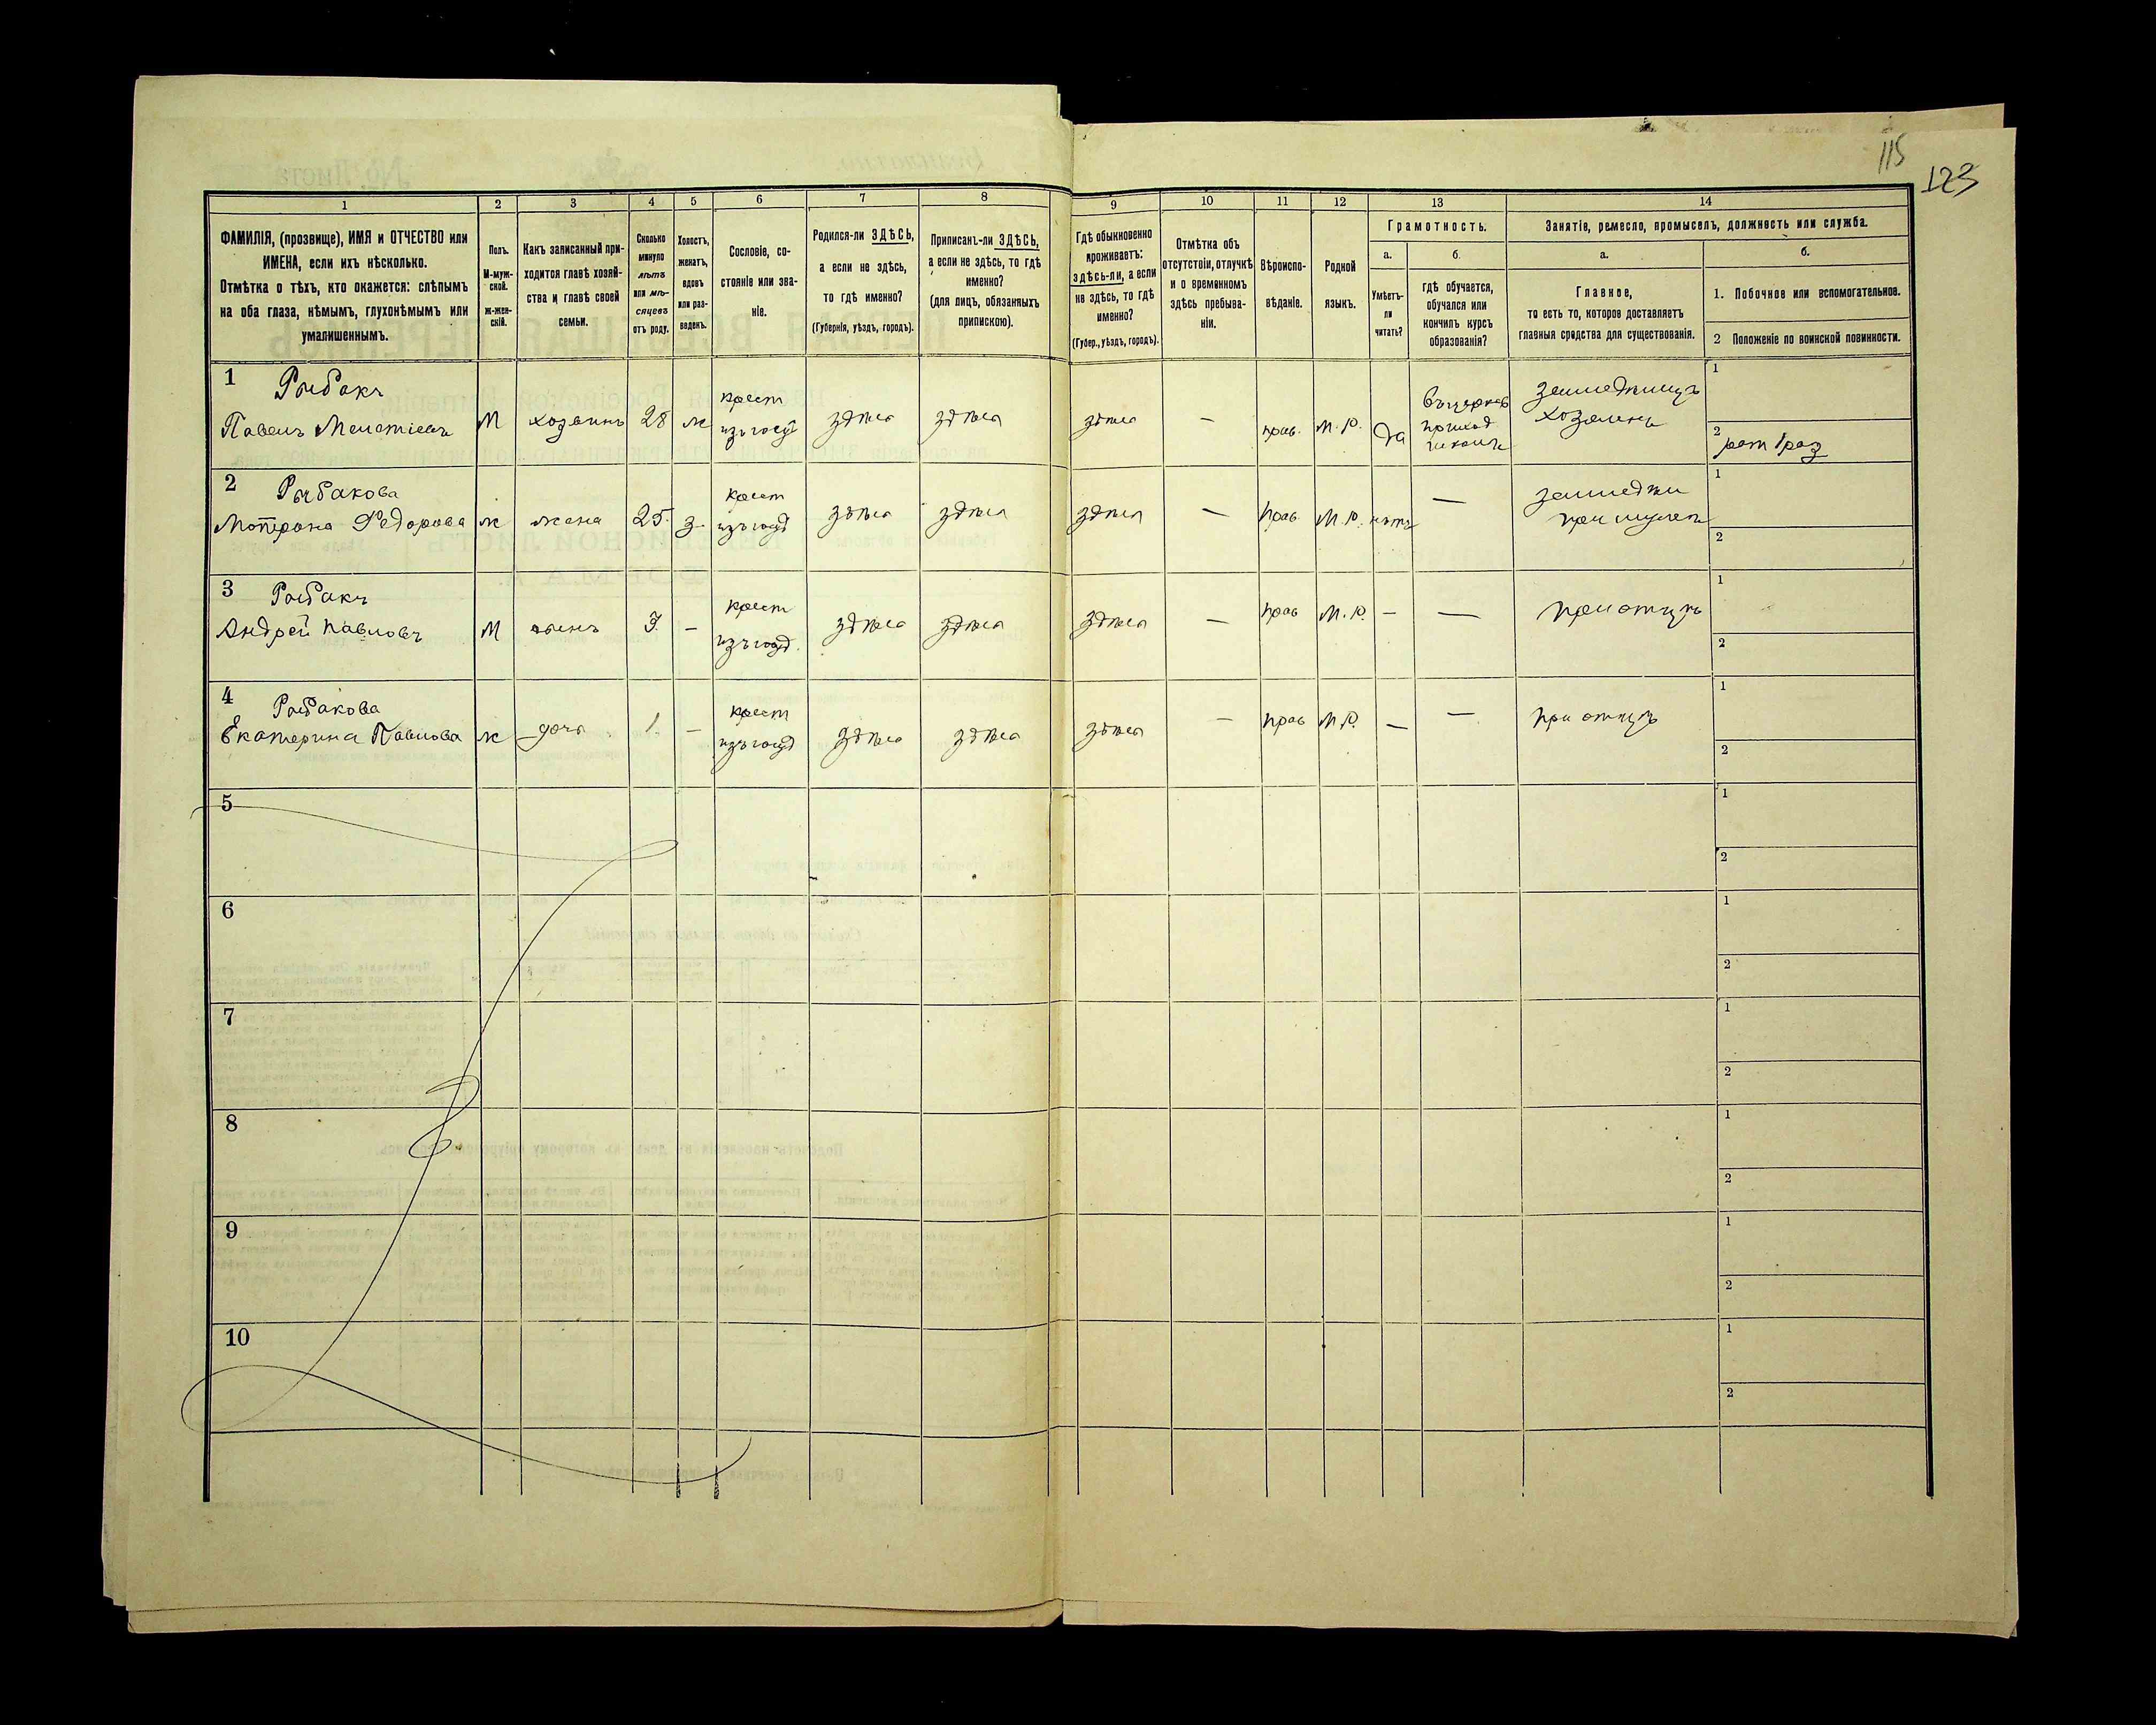 115
123
1 2 3 4 5 6 7 8 9 10 11 12 13 14
ФАМИЛІЯ, (прозвище), ИМЯ и ОТЧЕСТВО или
ИМЕНА, если ихъ нѣсколько.
Отмѣтка о тѣхъ, кто окажется: слѣпымъ
на оба глаза, нѣмымъ, глухонѣмымъ или
умалишеннымъ.
Полъ.
М-муж-
ской.
Ж-жен-
скій.
Какъ записанный при-
ходится главѣ хозяй-
ства и главѣ своей
семьи.
Сколько
минуло
лѣтъ
или мѣ-
сяцевъ
отъ роду.
Холостъ,
женатъ,
вдовъ
или раз-
веденъ.
Сословіе, со-
стояніе или зва-
ніе.
Родился-ли ЗДѢСЬ,
а если не здѣсь,
то гдѣ именно?
(Губернія, уѣздъ, городъ).
Приписанъ-ли ЗДѢСЬ,
а если не здѣсь, то гдѣ
именно?
(для лицъ, обязанныхъ
припискою).
Гдѣ обыкновенно
проживаетъ:
здѣсь-ли, а если
не здѣсь, то гдѣ
именно?
(Губер., уѣздъ, городъ).
Отмѣтка объ
отсутствіи, отлучкѣ
и о временномъ
здѣсь пребыва-
ніи.
Вѣроиспо-
вѣданіе.
Родной
языкъ.
Грамотность.
а.
Умѣетъ-
ли
читать?
б.
гдѣ обучается,
обучался или
кончилъ курсъ
образованія?
Занятіе, ремесло, промыселъ, должность или служба.
а.
Главное,
то есть то, которое доставляетъ
главныя средства для существованія.
б.
1. Побочное или вспомогательное.
2 Положеніе по воинской повинности.
1 Рыбакъ
Павелъ
М хозяинъ 28 ж
крест
здѣсь здѣсь здѣсь — прав. М.Р. да
приход
хозяинъ
1
2
рат 1 раз
2 Рыбакова
Федорова ж жена 25 з
крест
здѣсь здѣсь здѣсь — прав М.Р. нѣтъ —
1
2
3 Рыбакъ
Андрей Павловъ М сынъ 3 —
крест
здѣсь здѣсь здѣсь — прав М.Р. — — при отцѣ
1
2
4 Рыбакова
Екатерина Павлова ж дочь 1 —
крест
здѣсь здѣсь здѣсь — прав М.Р. — — при отцѣ
1
2
5
1
2
6
1
2
7
1
2
8
1
2
9
1
2
10
1
2